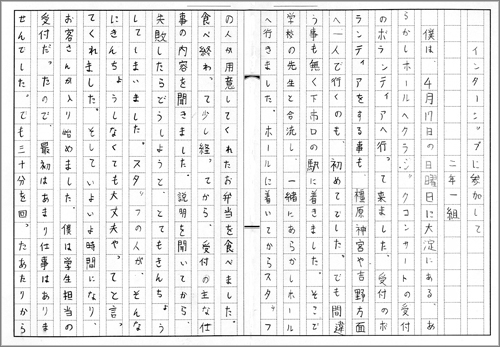 インターンシップに参加して
二年一組
僕は、4月17日の日曜日に大淀にある、あ
らかしホールへクラシックコンサートの受付
のボランティアへ行って来ました。受付のボ
ランティアをする事も、橿原神宮や吉野方面
へ一人で行くのも、初めてでした。でも間違
う事も無く下市口の駅に着きました。そこで
学校の先生と合流し、一緒にあらかしホール
へ行きました。ホールに着いてからスタッフ
の人が用意してくれたお弁当を食べました。
食べ終わって少し経ってから、受付の主な仕
事の内容を聞きました。説明を聞いてから、
失敗したらどうしようと、とてもきんちょう
しました。スタッフの人が、そんな
にきんちょうしなくても大丈夫や。って言っ
てくれました。そしていよいよ時間になり、
お客さんが入り始めました。僕は学生担当の
受付だった。最初はあまり仕事はありま
せんでした。でも三十分を回ったあたりから